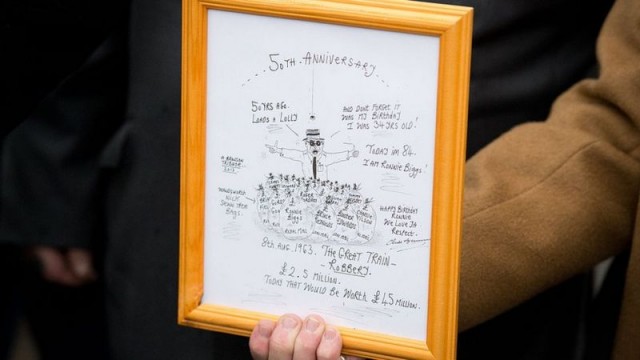 50TH. ANNIVERSARY
50 YRS AGO.
LOADS A LOLLY
AND DONT FORGET IT
WAS MY BIRTHDAY
I WAS 34 YRS OLD!
TODAY IM 84
I AM RONNIE BIGGS!
RONNIE
BIGGS
BRUCE
REYNOLDS
BUSTER
EDWARDS
CHARLIE
WILSON
HAPPY BIRTHDAY
RONNIE
WE LOVE IT
RESPECT.
8TH AUG. 1963. THE GREAT TRAIN
- ROBBERY.
£2.5 MILLION.
TODAY THAT WOULD BE WORTH £45 MILLION.